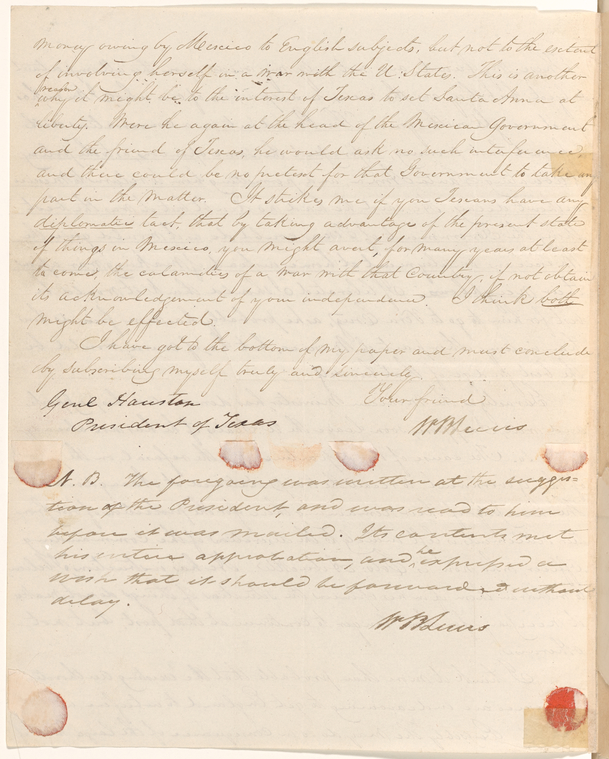 money owing by Mexico to English subjects, but not to the extent
of involving herself in a war with the U. States. This is another
reason
why it might be to the interest of Texas to set Santa Anna at
liberty. Were he again at the head of the Mexican Government
and the friend of Texas, he would ask no such interference
and there could be no pretext for that Government to take any
part in the matter. It strikes me if you Texians have any
diplomatic tact, that by taking advantage of the present state
of things in Mexico, you might avert, for many years at least
to come, the calamities of a war with that Country, if not obtain
its acknowledgement of your independence. I think both
might be effected.
I have got to the bottom of my paper and must conclude
by subscribing myself truly and sincerely
Your friend
Genl Houston
President of Texas
WBLewis
N. B. The foregoing was written at the sugges=
tion of the President, and was read to him
before it was mailed. Its contents met
his entire approbation, and he expressed a
wish that it should be forwarded without
delay.
WBLewis